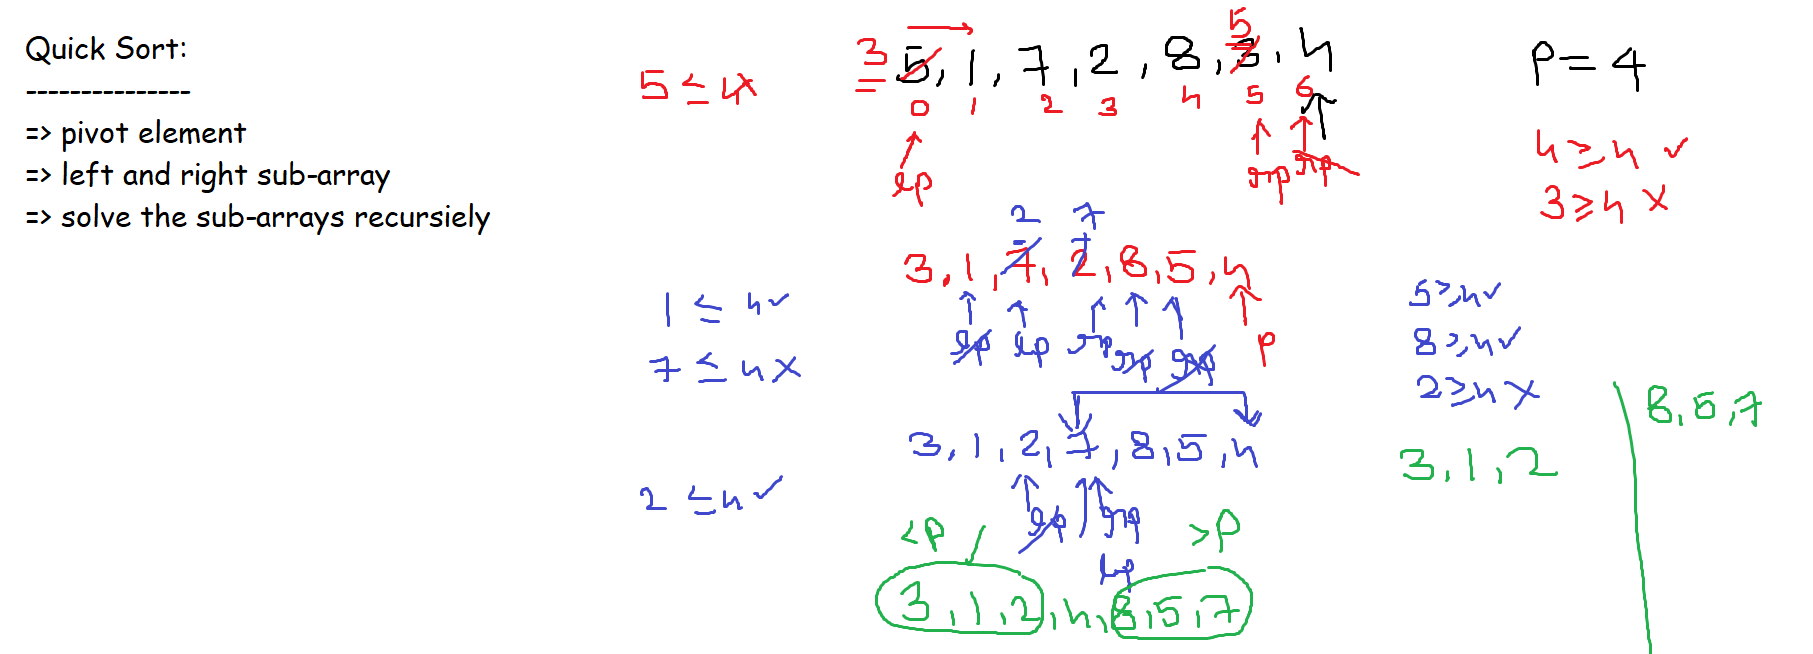 Quick Sort:
---------------
=> pivot element
=> left and right sub-array
=> solve the sub-arrays recursiely
5 ≤ 4 X
3 5, 1, 7, 2, 8, 3, 4
5
0 1 2 3 4 5 6
lp rp rp
P = 4
4 ≥ 4 ✓
3 ≥ 4 X
2 7
3, 1, 7, 2, 8, 5, 4
lp lp rp rp rp P
1 ≤ 4 ✓
7 ≤ 4 X
5 ≥ 4 ✓
8 ≥ 4 ✓
2 ≥ 4 X
3, 1, 2, 7, 8, 5, 4
lp rp
lp
2 ≤ 4 ✓
3, 1, 2
8, 5, 7
<P >P
3, 1, 2, 4, 8, 5, 7